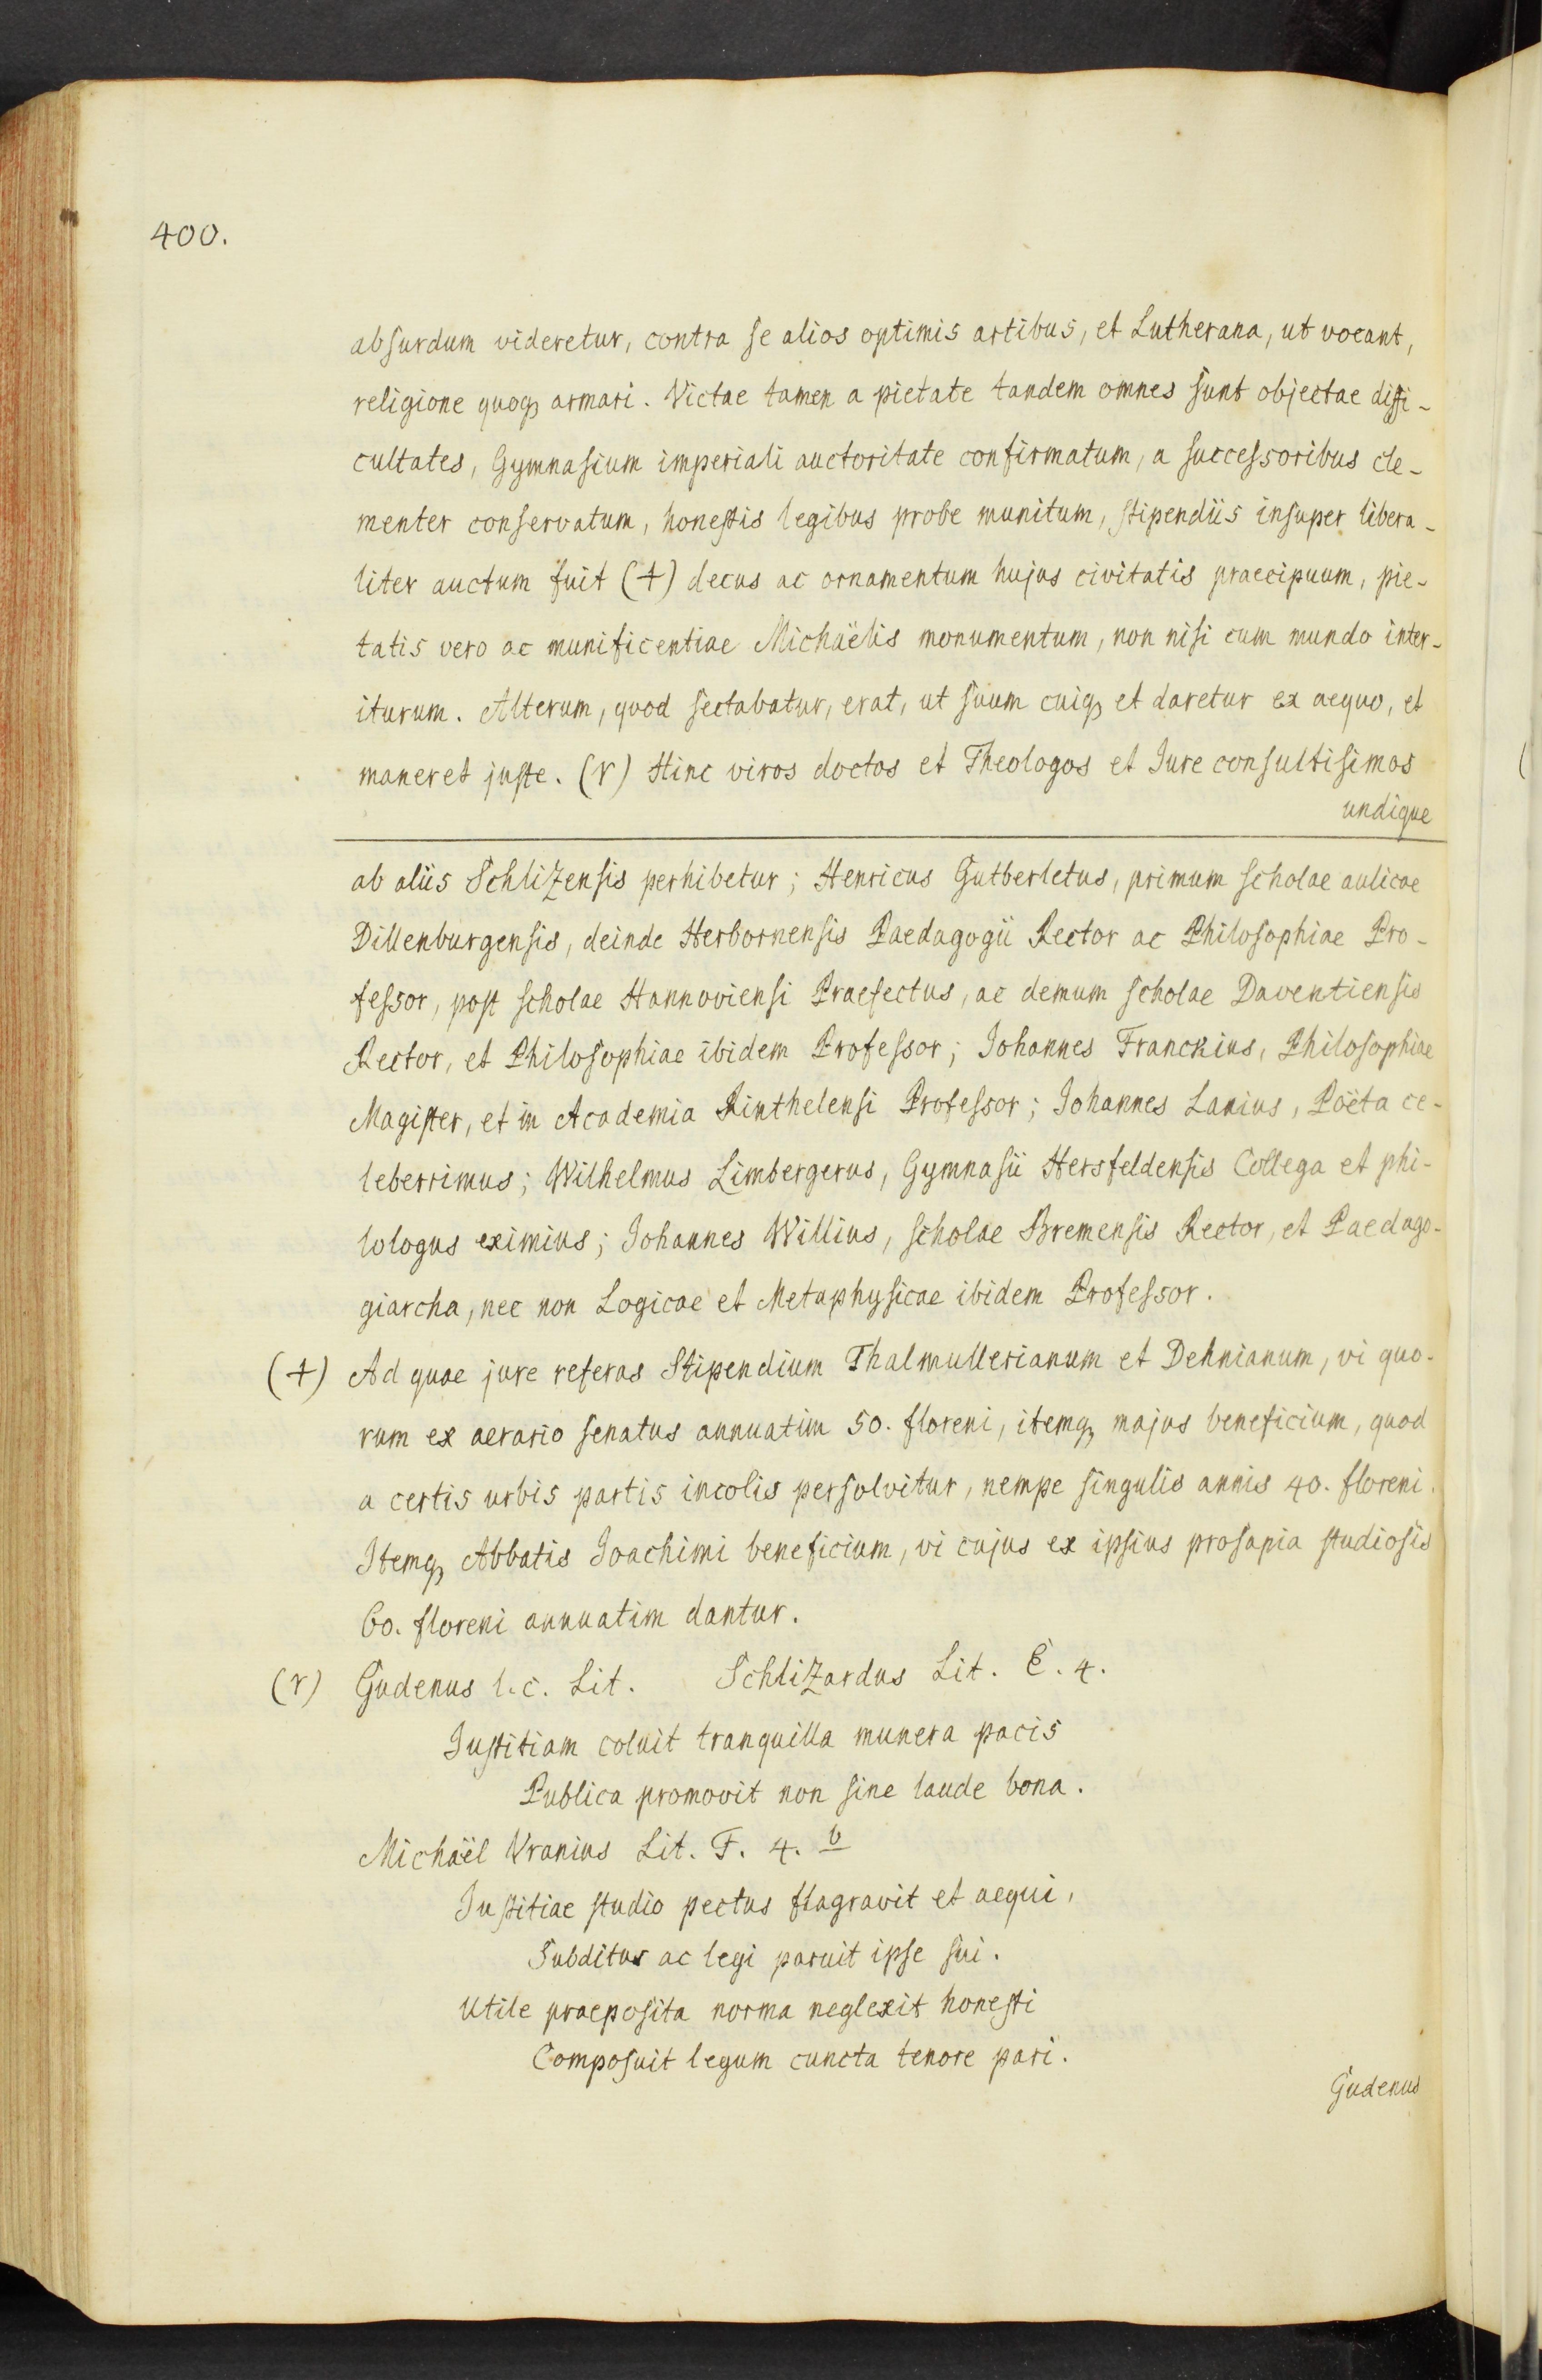 400.
absurdum videretur, contra se alios optimis artibus, et Lutherana, ut vocant,
religione quoq, armari. Victae tamen a pietate tandem omnes sunt objectae diffi-
cultates, Gymnasium imperiali auctoritate confirmatum, a successoribus cle-
menter conservatum, honestis legibus probe munitum, stipendiis insuper libera-
liter auctum fuit (+) decus ac ornamentum hujus civitatis praecipuum, pie-
tatis vero ac munificentiae Michäelis monumentum, non nisi cum mundo inter-
iturum. Alterum, quod sectabatur, erat, ut suum cuiq, et daretur ex aequo, et
maneret juste. (r) Hinc viros doctos et Theologos et Jure consultisimos
undique
ab aliis Schlizensis perhibetur; Henricus Gutberletus, primum scholae aulicae
Dillenburgensis, deinde Herbornensis Paedagogii Rector ac Philosophiae Pro-
fessor, post scholae Hannoviensi Praefectus, ac demum scholae Daventiensis
Rector, et Philosophiae ibidem Professor; Johannes Franckius, Philosophiae
Magister, et in Academia Rinthelensi Professor; Johannes Lanius, Poëta ce-
leberrimus; Wilhelmus Limbergerus, Gymnasii Hersfeldensis Collega et phi-
lologus eximius; Johannes Willius, scholae Bremensis Rector, et Paedago-
giarcha, nec non Logicae et Metaphysicae ibidem Professor.
(+) Ad quae jure referas Stipendium Thalmullerianum et Dehnianum, vi quo-
rum ex aerario senatus annuatim 50. floreni, itemq, majus beneficium, quod
a certis urbis partis incolis persolvitur, nempe singulis annis 40. floreni.
Itemq, Abbatis Joachimi beneficium, vi cujus ex ipsius prosapia studiosis
60. floreni annuatim dantur.
(r) Gudenus l.c. Lit. Schlizardus Lit. E. 4.
Justitiam coluit tranquilla munera pacis
Publica promovit non sine laude bona.
Michäel Vranius Lit. F. 4. b
Justitiae studio pectus flagravit et aequi,
Subditus ac legi paruit ipse sui.
Utile praeposita norma neglexit honesti
Composuit legum cuncta tenore pari.
Gudenus